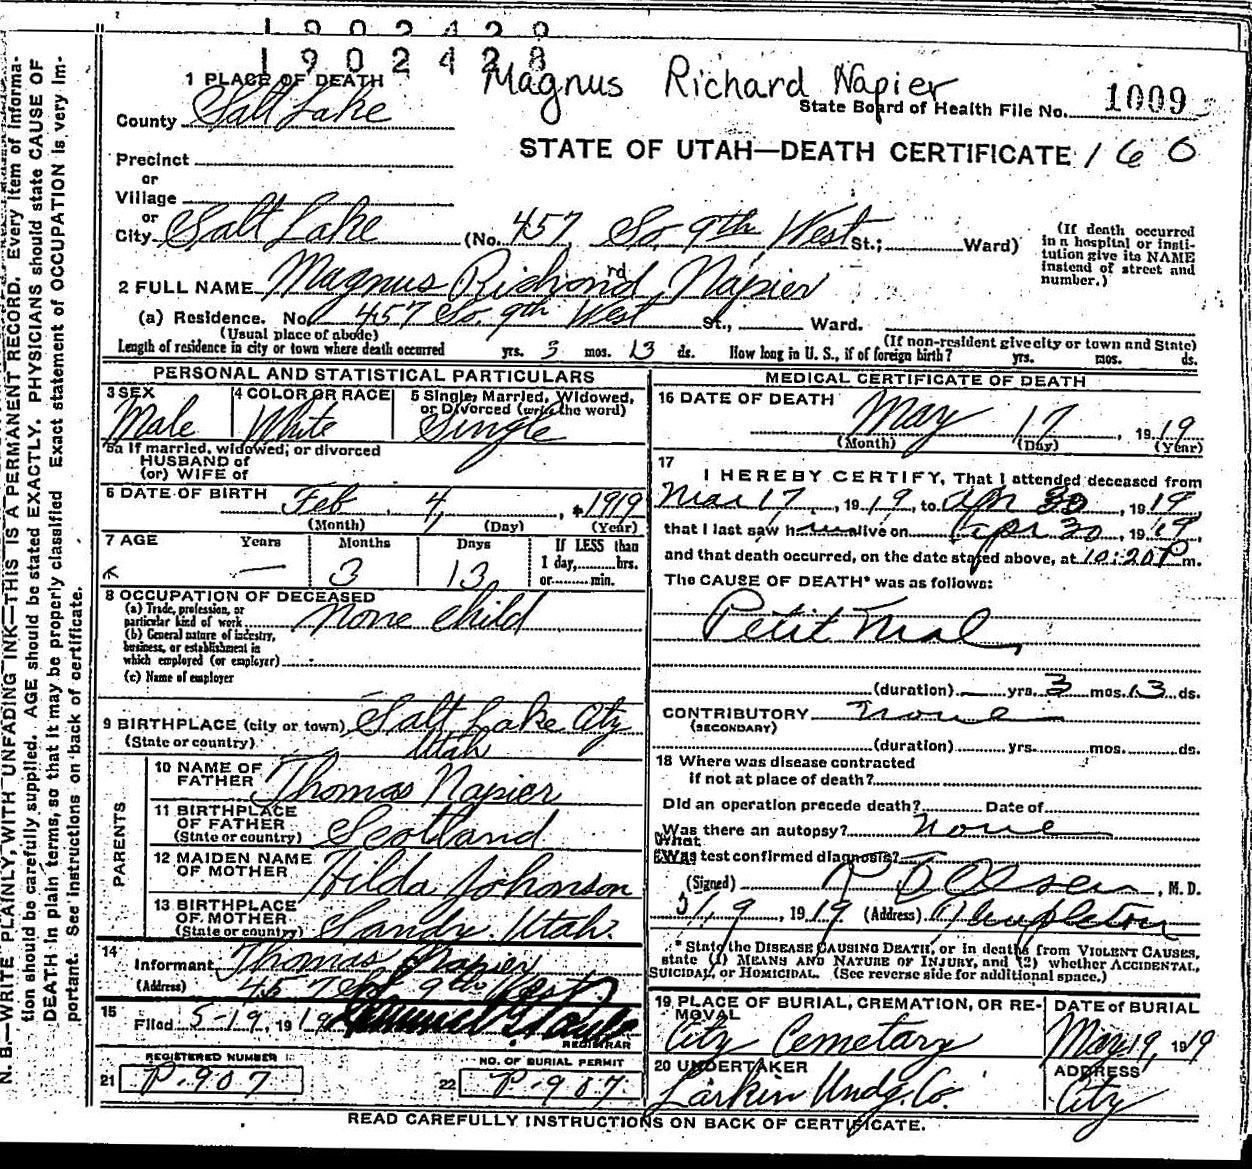 1902428
1902428
Magnus Richard Napier
1 PLACE OF DEATH
County Salt Lake
State Board of Health File No. 1009
STATE OF UTAH—DEATH CERTIFICATE 160
Precinct
or
Village
or
City Salt Lake (No. 457 So. 9th West St.; Ward)
(If death occurred in a hospital or institution give its NAME instead of street and number.)
2 FULL NAME Magnus Richard Napier
(a) Residence. No. 457 So. 9th West St., Ward.
(Usual place of abode) (If non-resident give city or town and State)
Length of residence in city or town where death occurred yrs. 3 mos. 13 ds. How long in U. S., if of foreign birth? yrs. mos. ds.
PERSONAL AND STATISTICAL PARTICULARS
3 SEX Male
4 COLOR OR RACE White
5 Single, Married, Widowed, or Divorced (write the word) Single
5a If married, widowed, or divorced
HUSBAND of
(or) WIFE of
6 DATE OF BIRTH Feb 4, 1919
(Month) (Day) (Year)
7 AGE Years Months Days If LESS than
— 3 13 1 day, hrs.
or min.
8 OCCUPATION OF DECEASED
(a) Trade, profession, or particular kind of work None child
(b) General nature of industry, business, or establishment in which employed (or employer)
(c) Name of employer
9 BIRTHPLACE (city or town) Salt Lake City
(State or country) Utah
PARENTS
10 NAME OF FATHER Thomas Napier
11 BIRTHPLACE OF FATHER (State or country) Scotland
12 MAIDEN NAME OF MOTHER Hilda Johnson
13 BIRTHPLACE OF MOTHER (State or country) Sandy, Utah.
14 Informant Thomas Napier
(Address) 457 So 9th West
15 Filed 5-19, 1919
REGISTRAR
REGISTERED NUMBER
21 P-907
NO. OF BURIAL PERMIT
22 P-907
MEDICAL CERTIFICATE OF DEATH
16 DATE OF DEATH May 17, 1919
(Month) (Day) (Year)
17 I HEREBY CERTIFY, That I attended deceased from
Mar 17, 1919, to Apr 30, 1919,
that I last saw him alive on Apr 30, 1919,
and that death occurred, on the date stated above, at 10:20 P m.
The CAUSE OF DEATH* was as follows:
Petit Mal,
(duration) — yrs. 3 mos. 13 ds.
CONTRIBUTORY None
(SECONDARY)
(duration) yrs. mos. ds.
18 Where was disease contracted
if not at place of death?
Did an operation precede death? Date of
Was there an autopsy? None
What test confirmed diagnosis?
(Signed) Olsen, M. D.
19, 1919 (Address) Templeton
* State the DISEASE CAUSING DEATH, or in deaths from VIOLENT CAUSES,
state (1) MEANS AND NATURE OF INJURY, and (2) whether ACCIDENTAL,
SUICIDAL, or HOMICIDAL. (See reverse side for additional space.)
19 PLACE OF BURIAL, CREMATION, OR REMOVAL City Cemetary
DATE OF BURIAL May 19, 1919
20 UNDERTAKER Larkin Undg. Co.
ADDRESS City
READ CAREFULLY INSTRUCTIONS ON BACK OF CERTIFICATE.
N. B.—WRITE PLAINLY, WITH UNFADING INK—THIS IS A PERMANENT RECORD. Every item of informa-
tion should be carefully supplied. AGE should be stated EXACTLY. PHYSICIANS should state CAUSE OF
DEATH in plain terms, so that it may be properly classified Exact statement of OCCUPATION is very im-
portant. See instructions on back of certificate.